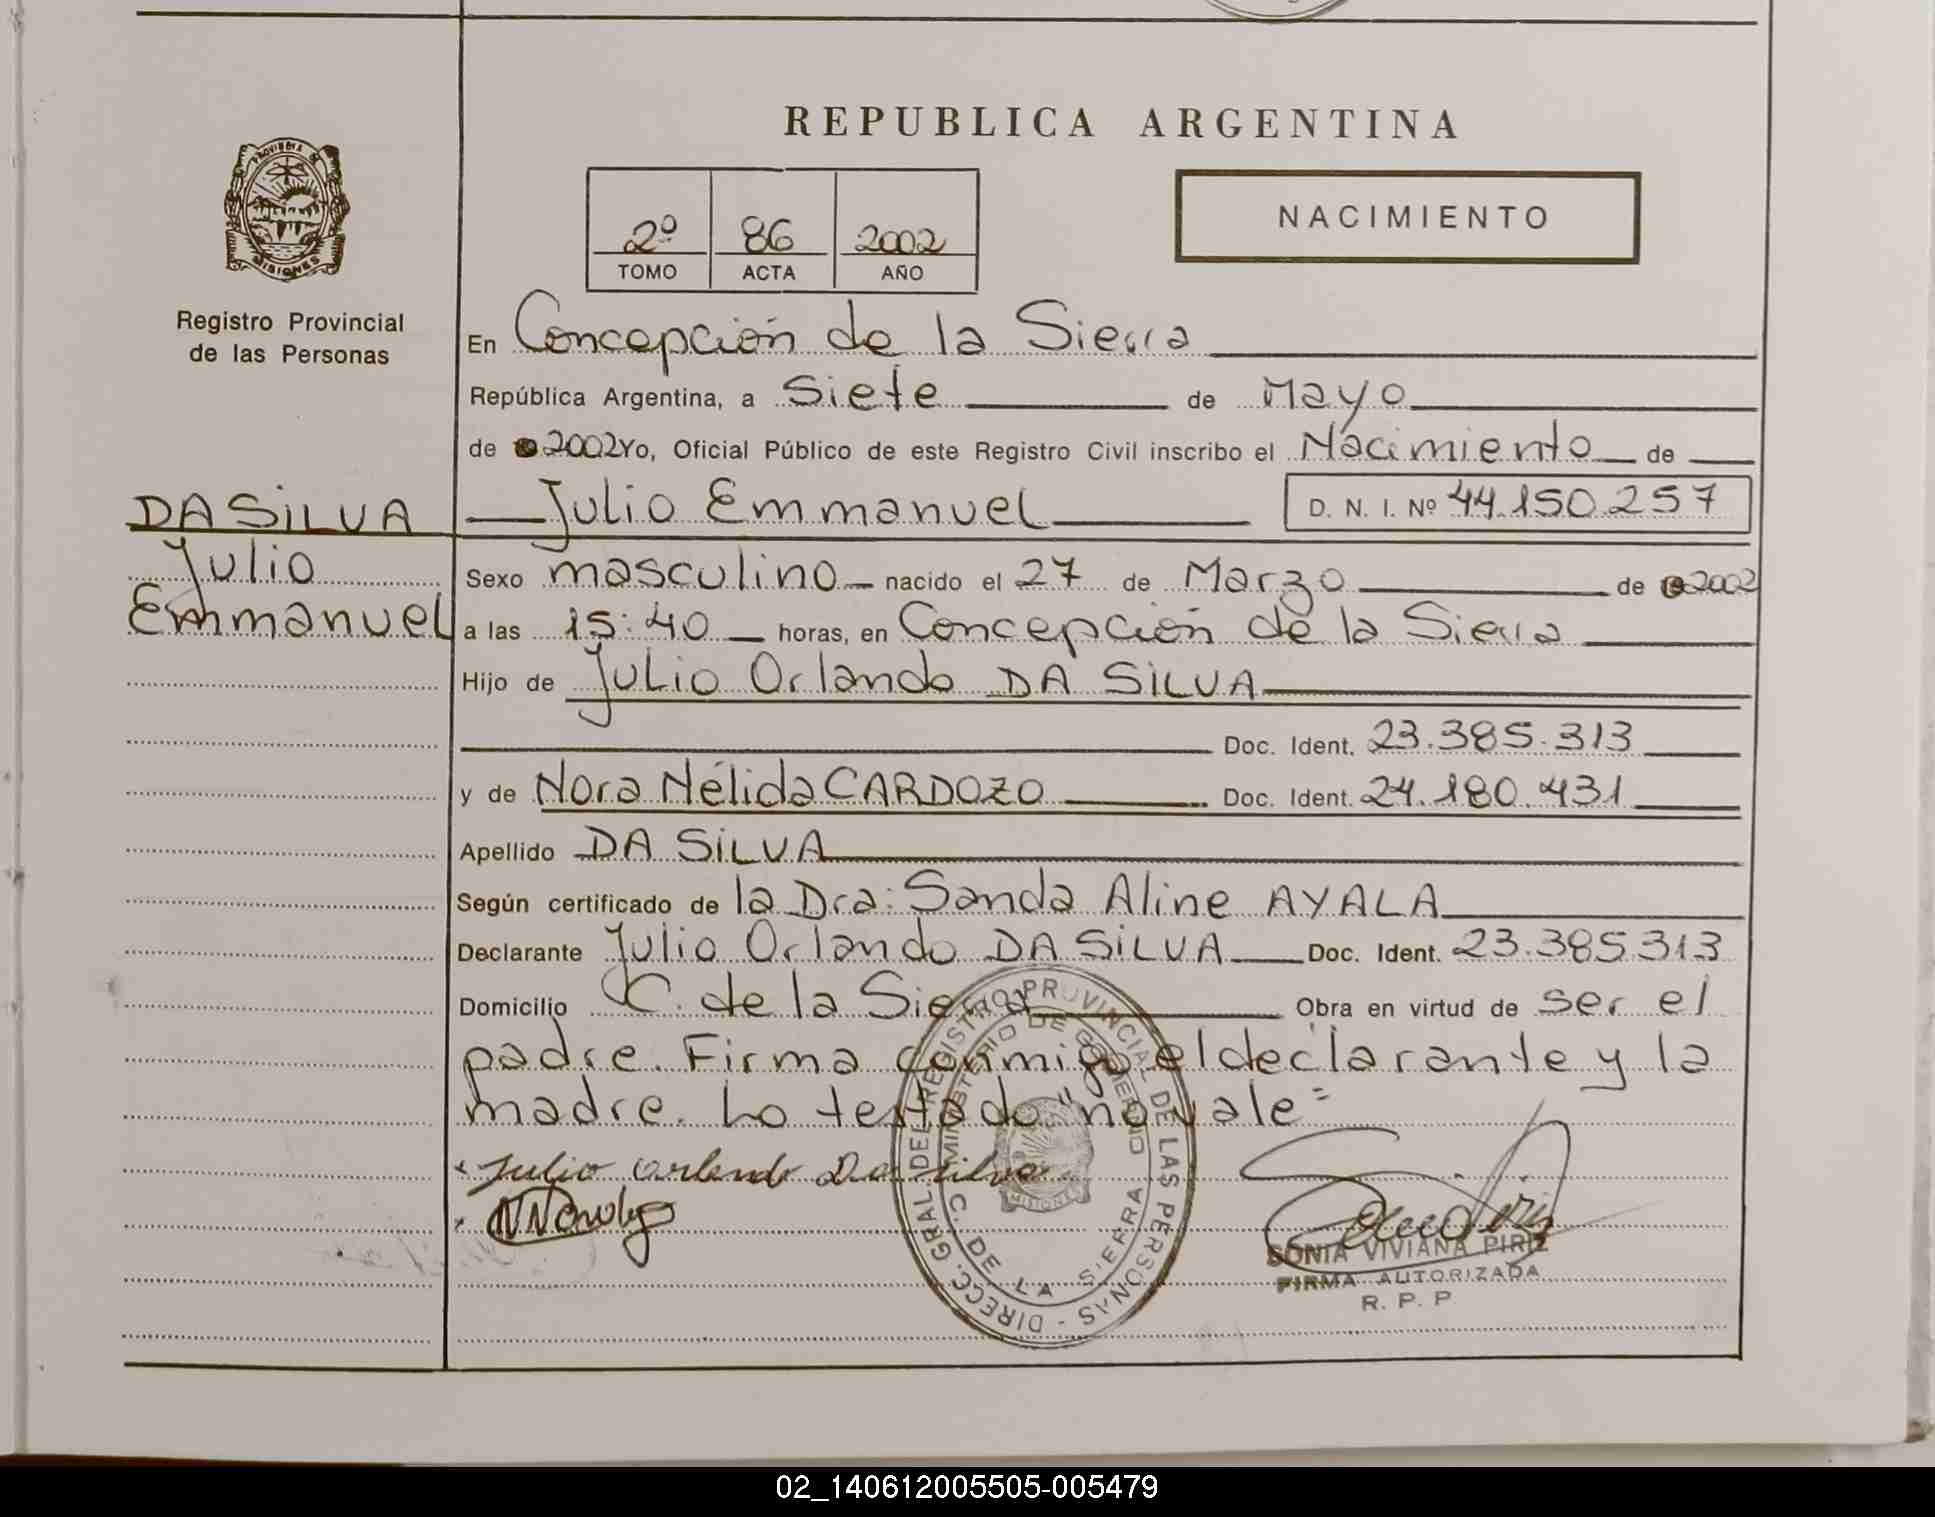 REPUBLICA ARGENTINA
PROVINCIA DE MISIONES
Registro Provincial
de las Personas
2º 86 2002
TOMO ACTA AÑO
NACIMIENTO
En Concepción de la Sierra
República Argentina, a Siete de Mayo
de 2002 Yo, Oficial Público de este Registro Civil inscribo el Nacimiento de
DA SILVA
Julio
Emmanuel
Julio Emmanuel D. N. I. Nº 44.150.257
Sexo masculino nacido el 27 de Marzo de 2002
a las 15:40 horas, en Concepción de la Sierra
Hijo de Julio Orlando DA SILVA
Doc. Ident. 23.385.313
y de Nora Nélida CARDOZO Doc. Ident. 24.180.431
Apellido DA SILVA
Según certificado de la Dra: Sanda Aline AYALA
Declarante Julio Orlando DA SILVA Doc. Ident. 23.385.313
Domicilio C. de la Sierra Obra en virtud de ser el
padre. Firma conmigo el declarante y la
madre. Lo testado "no vale"
Julio Orlando Da Silva
DIRECC. GRAL. DEL REGISTRO PROVINCIAL DE LAS PERSONAS
MINISTERIO DE GOBIERNO
C. DE LA SIERRA
MISIONES
SONIA VIVIANA PIRIZ
FIRMA AUTORIZADA
R. P. P
02_140612005505-005479